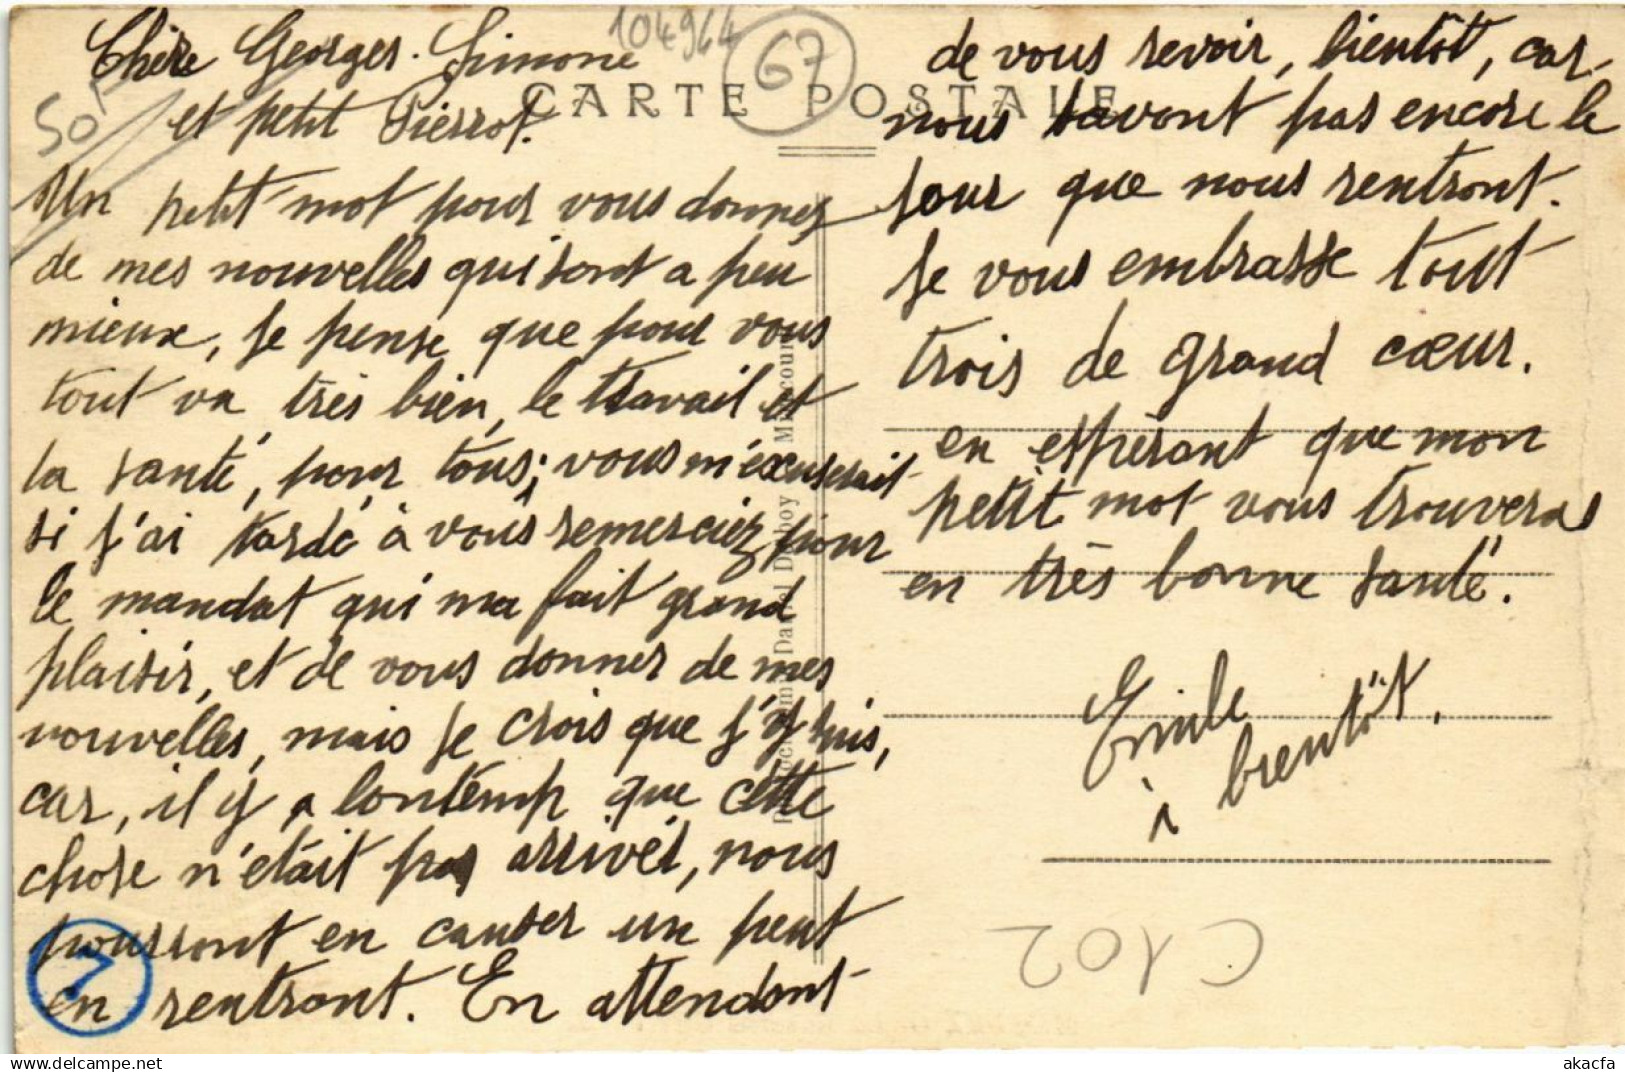 104944
67
50
CARTE POSTALE
Chère Georges. Simone
et petit Pierrot.
Un petit mot pour vous donnez
de mes nouvelles qui sont a peu
mieux, je pense que pour vous
tout va très bien, le travail et
la santé, pour tous; vous m'éxcuserait
si j'ai tardé à vous remerciez pour
le mandat qui ma fait grand
plaisir, et de vous donner de mes
nouvelles, mais je crois que j'y suis,
car, il y a lontemp que cette
chose n'était pas arrivét, nous
pourront en causer un peut
en rentront. En attendont
7
de vous revoir, bientôt, car
nous savont pas encore le
jour que nous rentront.
Je vous embrasse tout
trois de grand cœur.
en espèront que mon
petit mot vous trouveras
en très bonne santé.
Emile
à bientôt.
C102
akacfa